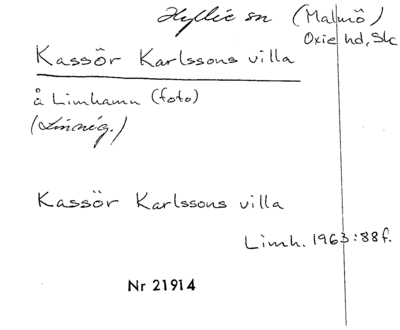 Hyllie sn (Malmö)
Oxie hd, Sk
Kassör Karlssons villa
å Limhamn (foto)
(Linnég.)
Kassör Karlssons villa
Limh. 1963:88f.
Nr 21914